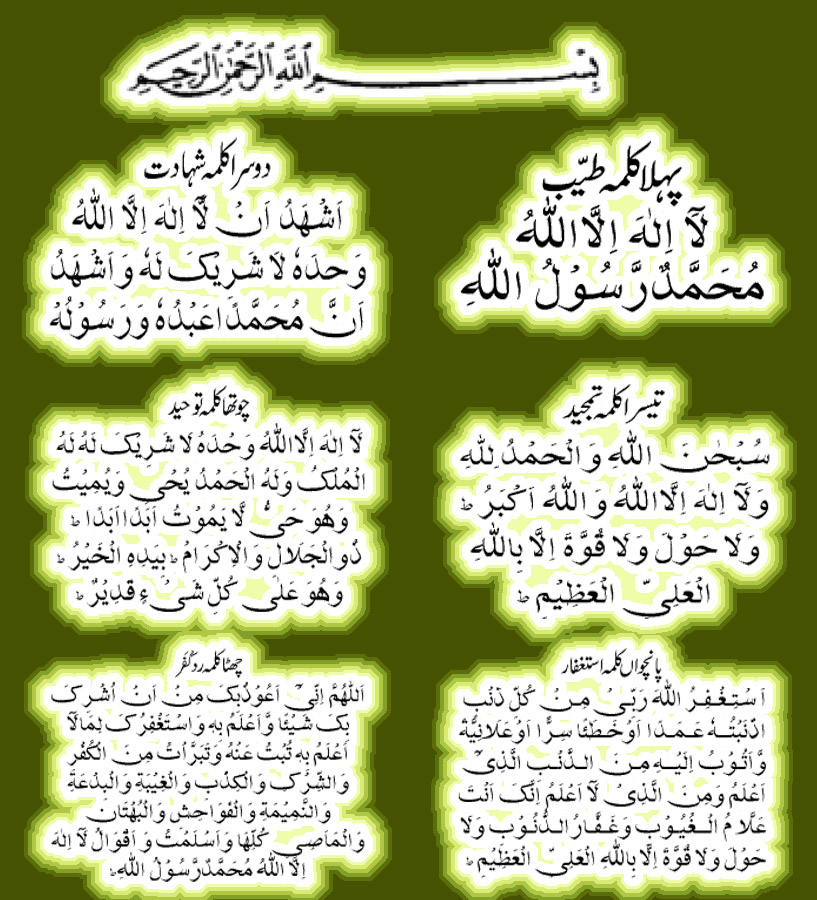 بِسْمِ اللهِ الرَّحْمٰنِ الرَّحِيْمِ
پہلا کلمہ طیّب
لَآ اِلٰهَ اِلَّا اللهُ
مُحَمَّدٌ رَّسُوْلُ اللهِ
دوسرا کلمہ شہادت
اَشْهَدُ اَنْ لَّآ اِلٰهَ اِلَّا اللهُ
وَحْدَهٗ لَا شَرِيْكَ لَهٗ وَاَشْهَدُ
اَنَّ مُحَمَّدًا عَبْدُهٗ وَرَسُوْلُهٗ
تیسرا کلمہ تمجید
سُبْحٰنَ اللهِ وَالْحَمْدُ لِلّٰهِ
وَلَآ اِلٰهَ اِلَّا اللهُ وَاللهُ اَكْبَرُ ط
وَلَا حَوْلَ وَلَا قُوَّةَ اِلَّا بِاللهِ
الْعَلِيِّ الْعَظِيْمِ ط
چوتھا کلمہ توحید
لَآ اِلٰهَ اِلَّا اللهُ وَحْدَهٗ لَا شَرِيْكَ لَهٗ لَهُ
الْمُلْكُ وَلَهُ الْحَمْدُ يُحْىٖ وَيُمِيْتُ
وَهُوَ حَىٌّ لَّا يَمُوْتُ اَبَدًا اَبَدًا ط
ذُو الْجَلَالِ وَالْاِكْرَامِ ط بِيَدِهِ الْخَيْرُ ط
وَهُوَ عَلٰى كُلِّ شَىْءٍ قَدِيْرٌ ط
پانچواں کلمہ استغفار
اَسْتَغْفِرُ اللهَ رَبِّىْ مِنْ كُلِّ ذَنْۢبٍ
اَذْنَبْتُهٗ عَمَدًا اَوْ خَطَئًا سِرًّا اَوْ عَلَانِيَةً
وَّاَتُوْبُ اِلَيْهِ مِنَ الذَّنْۢبِ الَّذِىْٓ
اَعْلَمُ وَمِنَ الَّذِىْ لَآ اَعْلَمُ اِنَّكَ اَنْتَ
عَلَّامُ الْغُيُوْبِ وَغَفَّارُ الذُّنُوْبِ وَلَا
حَوْلَ وَلَا قُوَّةَ اِلَّا بِاللهِ الْعَلِىِّ الْعَظِيْمِ ط
چھٹا کلمہ رد کفر
اَللّٰهُمَّ اِنِّىْٓ اَعُوْذُ بِكَ مِنْ اَنْ اُشْرِكَ
بِكَ شَيْئًا وَّاَعْلَمُ بِهٖ وَاسْتَغْفِرُكَ لِمَا لَآ
اَعْلَمُ بِهٖ تُبْتُ عَنْهُ وَتَبَرَّاْتُ مِنَ الْكُفْرِ
وَالشِّرْكِ وَالْكِذْبِ وَالْغِيْبَةِ وَالْبِدْعَةِ
وَالنَّمِيْمَةِ وَالْفَوَاحِشِ وَالْبُهْتَانِ
وَالْمَاصِىْ كُلِّهَا وَاَسْلَمْتُ وَاَقُوْلُ لَآ اِلٰهَ
اِلَّا اللهُ مُحَمَّدٌ رَّسُوْلُ اللهِ ط